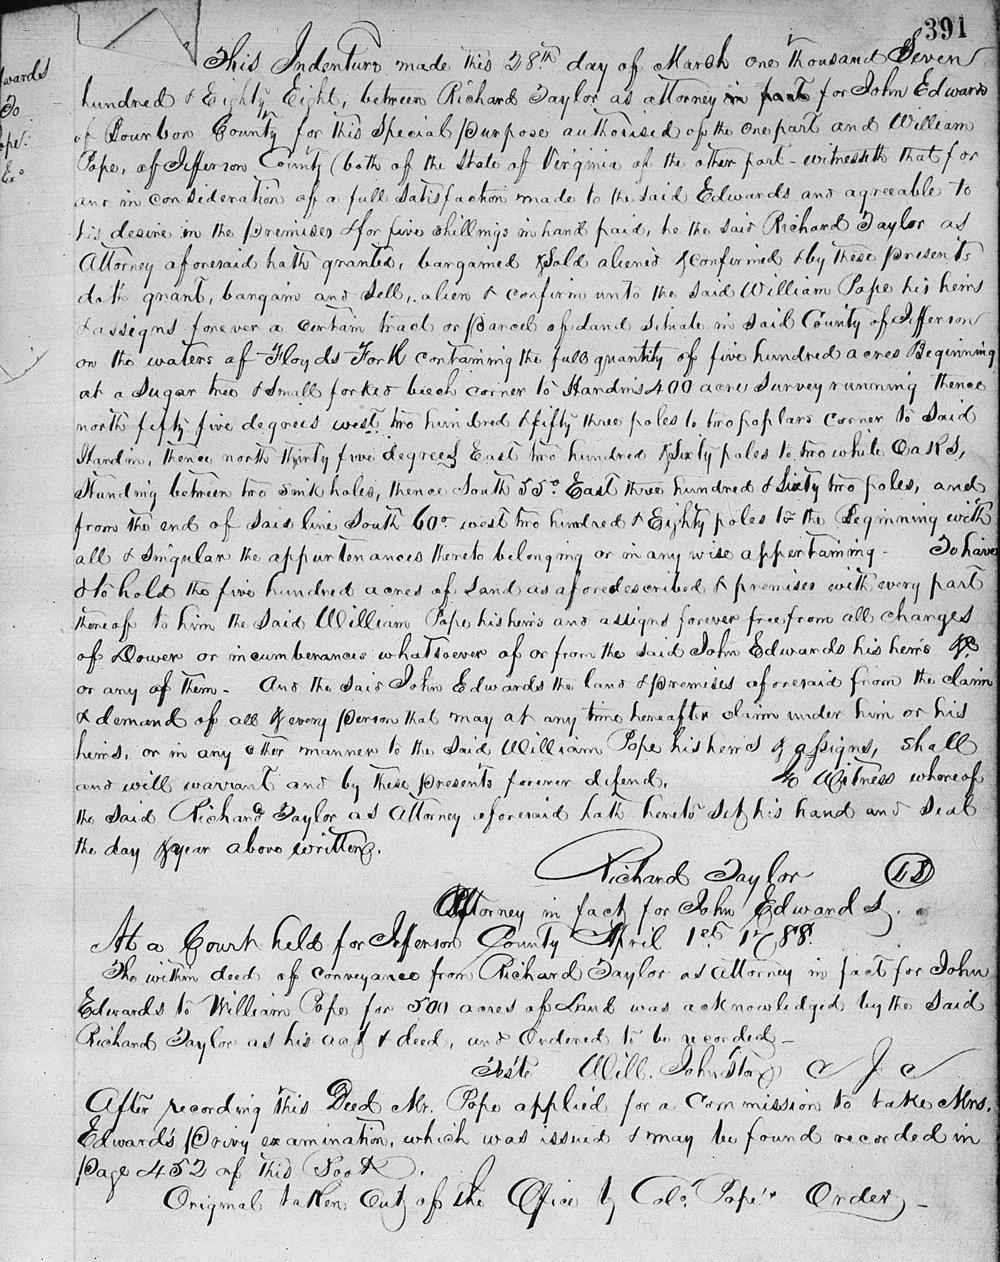 391
wards
To
ope.
Exo
This Indenture made this 28th day of March one thousand Seven
hundred & Eighty Eight, between Richard Taylor as attorney in fact for John Edwards
of Bourbon County for this Special purpose authorised of the one part and William
Pope, of Jefferson County (both of the State of Virginia of the other part - witnesseth that for
and in consideration of a full satisfaction made to the said Edwards and agreeable to
his desire in the premises & for five shillings in hand paid, he the said Richard Taylor as
Attorney aforesaid hath granted, bargained & Sold aliened & confirmed & by these presents
doth grant, bargain and Sell, alien & confirm unto the said William Pope his heirs
& assigns forever a certain tract or parcel of Land situate in said County of Jefferson
on the waters of Floyds Fork containing the full quantity of five hundred acres Beginning
at a Sugar tree & Small forked beech corner to Hardin's 400 acre Survey running thence
north fifty five degrees west two hundred & fifty three poles to two poplars corner to said
Hardin, thence north thirty five degrees East two hundred & Sixty poles to two white Oaks,
Standing between two Sink holes, thence South 55° East three hundred & Sixty two poles, and
from the end of said line South 60° west two hundred & Eighty poles to the Beginning with
all & Singular the appurtenances thereto belonging or in any wise appertaining - To have
& to hold the five hundred acres of Land as afore described & premises with every part
thereof to him the said William Pope his heirs and assigns forever free from all charges
of Dower or incumberances whatsoever of or from the said John Edwards his heirs &c
or any of them - And the said John Edwards the land & premises aforesaid from the claim
& demand of all & every person that may at any time hereafter claim under him or his
heirs, or in any other manner to the said William Pope his heirs & assigns, shall
and will warrant and by these presents forever defend. In Witness whereof
the said Richard Taylor as Attorney aforesaid hath hereto set his hand and seal
the day & year above written.
Richard Taylor LS
Attorney in fact for John Edwards.
At a Court held for Jefferson County April 1st 1788.
The within deed of conveyance from Richard Taylor as attorney in fact for John
Edwards to William Pope for 500 acres of Land was acknowledged by the said
Richard Taylor as his act & deed, and ordered to be recorded -
Teste Will. Johnston C J C
After recording this Deed Mr. Pope applied for a commission to take Mrs.
Edward's privy examination, which was issued & may be found recorded in
page 452 of this Book.
Original taken Out of the Office by Colo. Pope's Order -